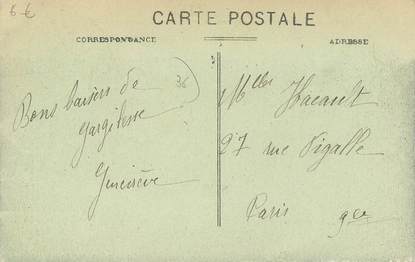 6 €
CARTE POSTALE
CORRESPONDANCE
ADRESSE
36
Bons baisers de
Gargilesse
Geneviève
Mlles Hacault
27 rue Pigalle
Paris 9e